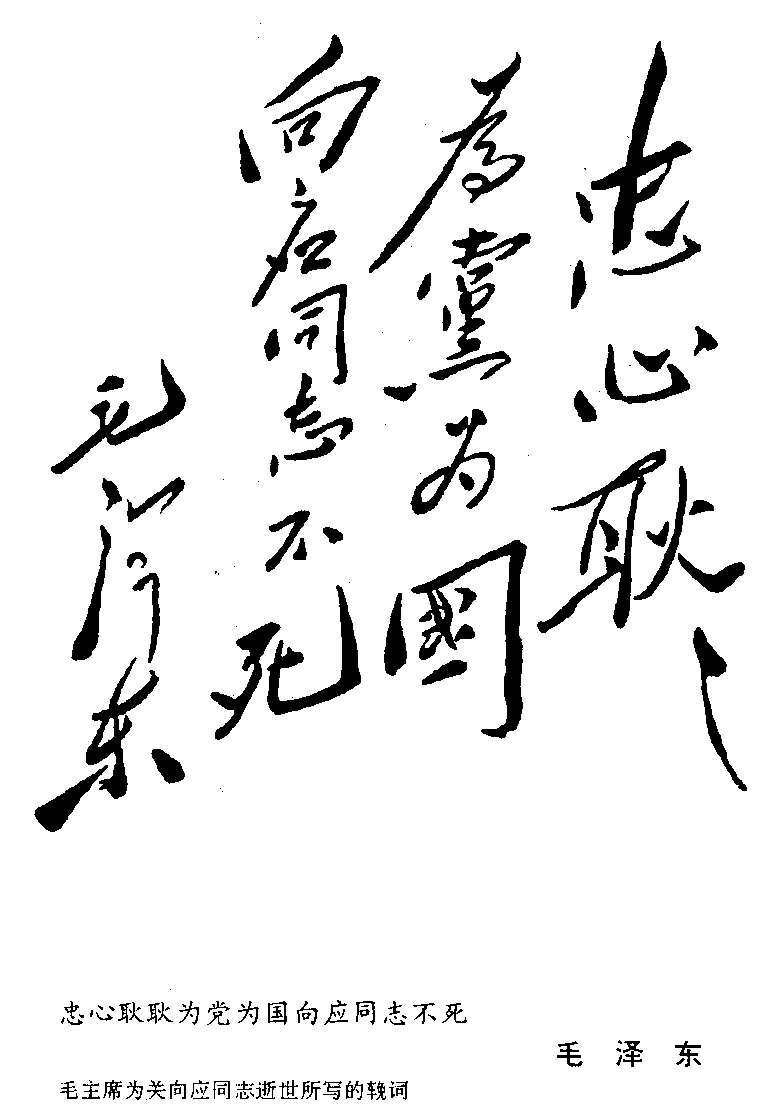 忠心耿〻
為黨为國
向应同志不死
毛泽东
忠心耿耿为党为国向应同志不死
毛泽东
毛主席为关向应同志逝世所写的輓词